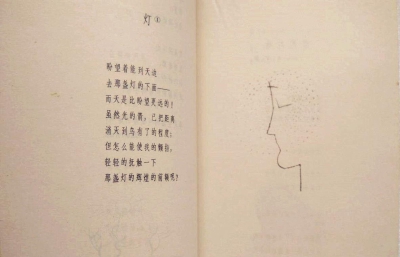 灯①
盼望着能到天边
去那盏灯的下面——
而天是比盼望更远的!
虽然光的箭,已把距离
消灭到乌有了的程度;
但怎么能使我的颤指,
轻轻的抚触一下
那盏灯的辉煌的前额呢?